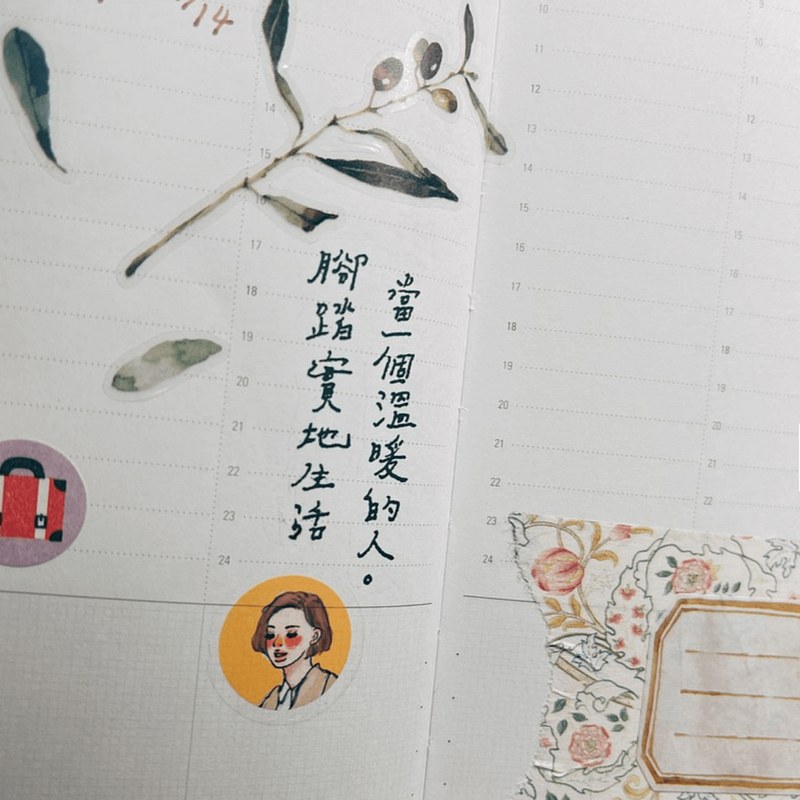 /14
14
15
16
17
18
19
20
21
22
23
24
當一個溫暖的人。
腳踏實地生活
10
11
12
13
14
15
16
17
18
19
20
21
22
23
24
9
10
11
12
13
14
15
16
17
18
19
20
21
22